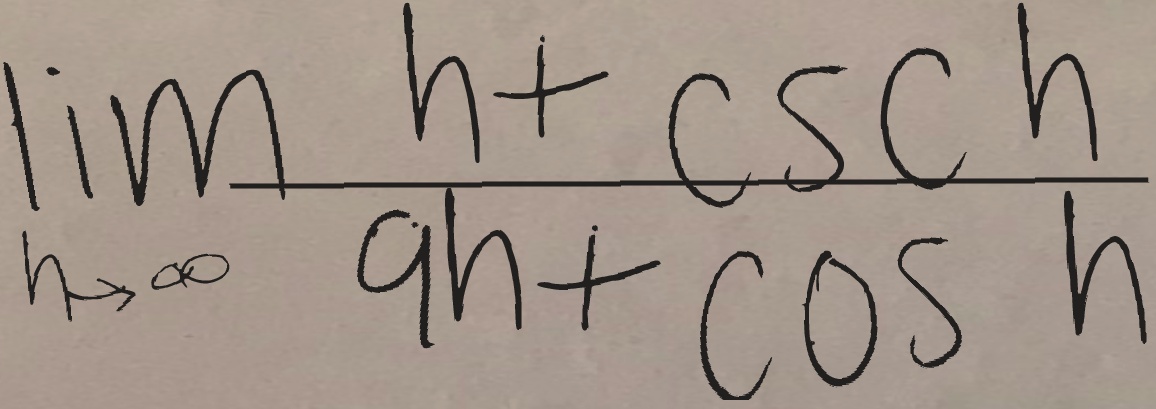 lim h + csc h
h → ∞ 9h + cos h